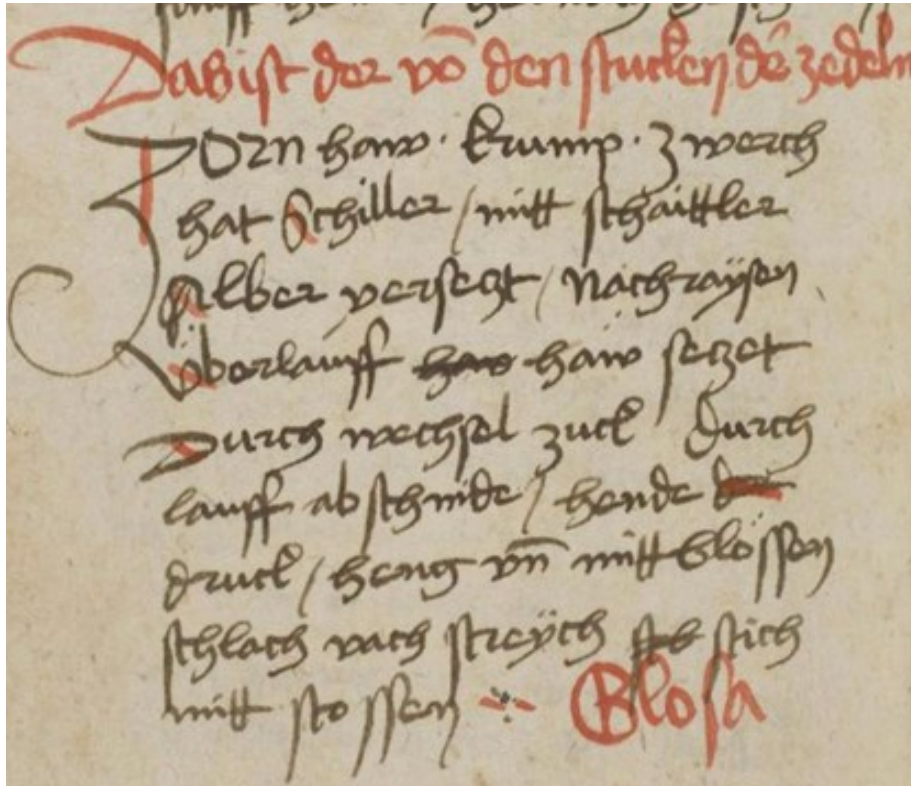 Das ist der vō den stucken der zedeln
Zorn haw · krump · zwerch
hat Schiller / mitt schaittler
Alber versetzt / Nachraÿsen
überlauff haw haw setzet
Durch wechsel zuck Durch
lauff abschnide / hende
druck / heng vn̄ mitt blössen
schlach vach streÿch stich
mitt stossen
Glosa